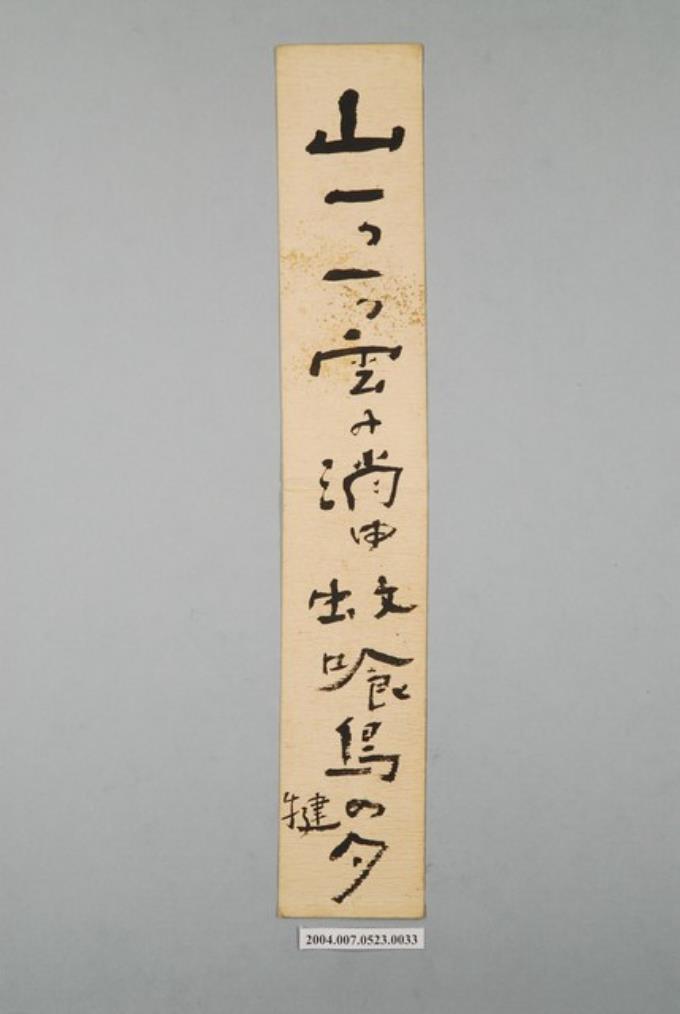 山一つ一つ雲み満ゆ蚊喰鳥の夕
犍
2004.007.0523.0033